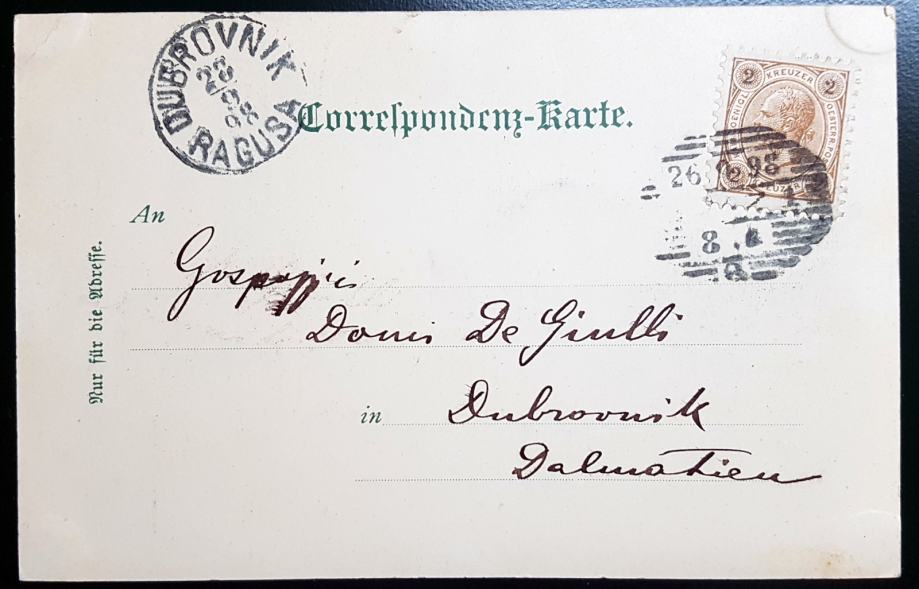 DUBROVNIK
28
98
RAGUSA
Correspondenz-Karte.
2 KREUZER 2
26 98
8
An
Nur für die Adresse.
Gospojji
Domi De Giulli
in Dubrovnik
Dalmatien